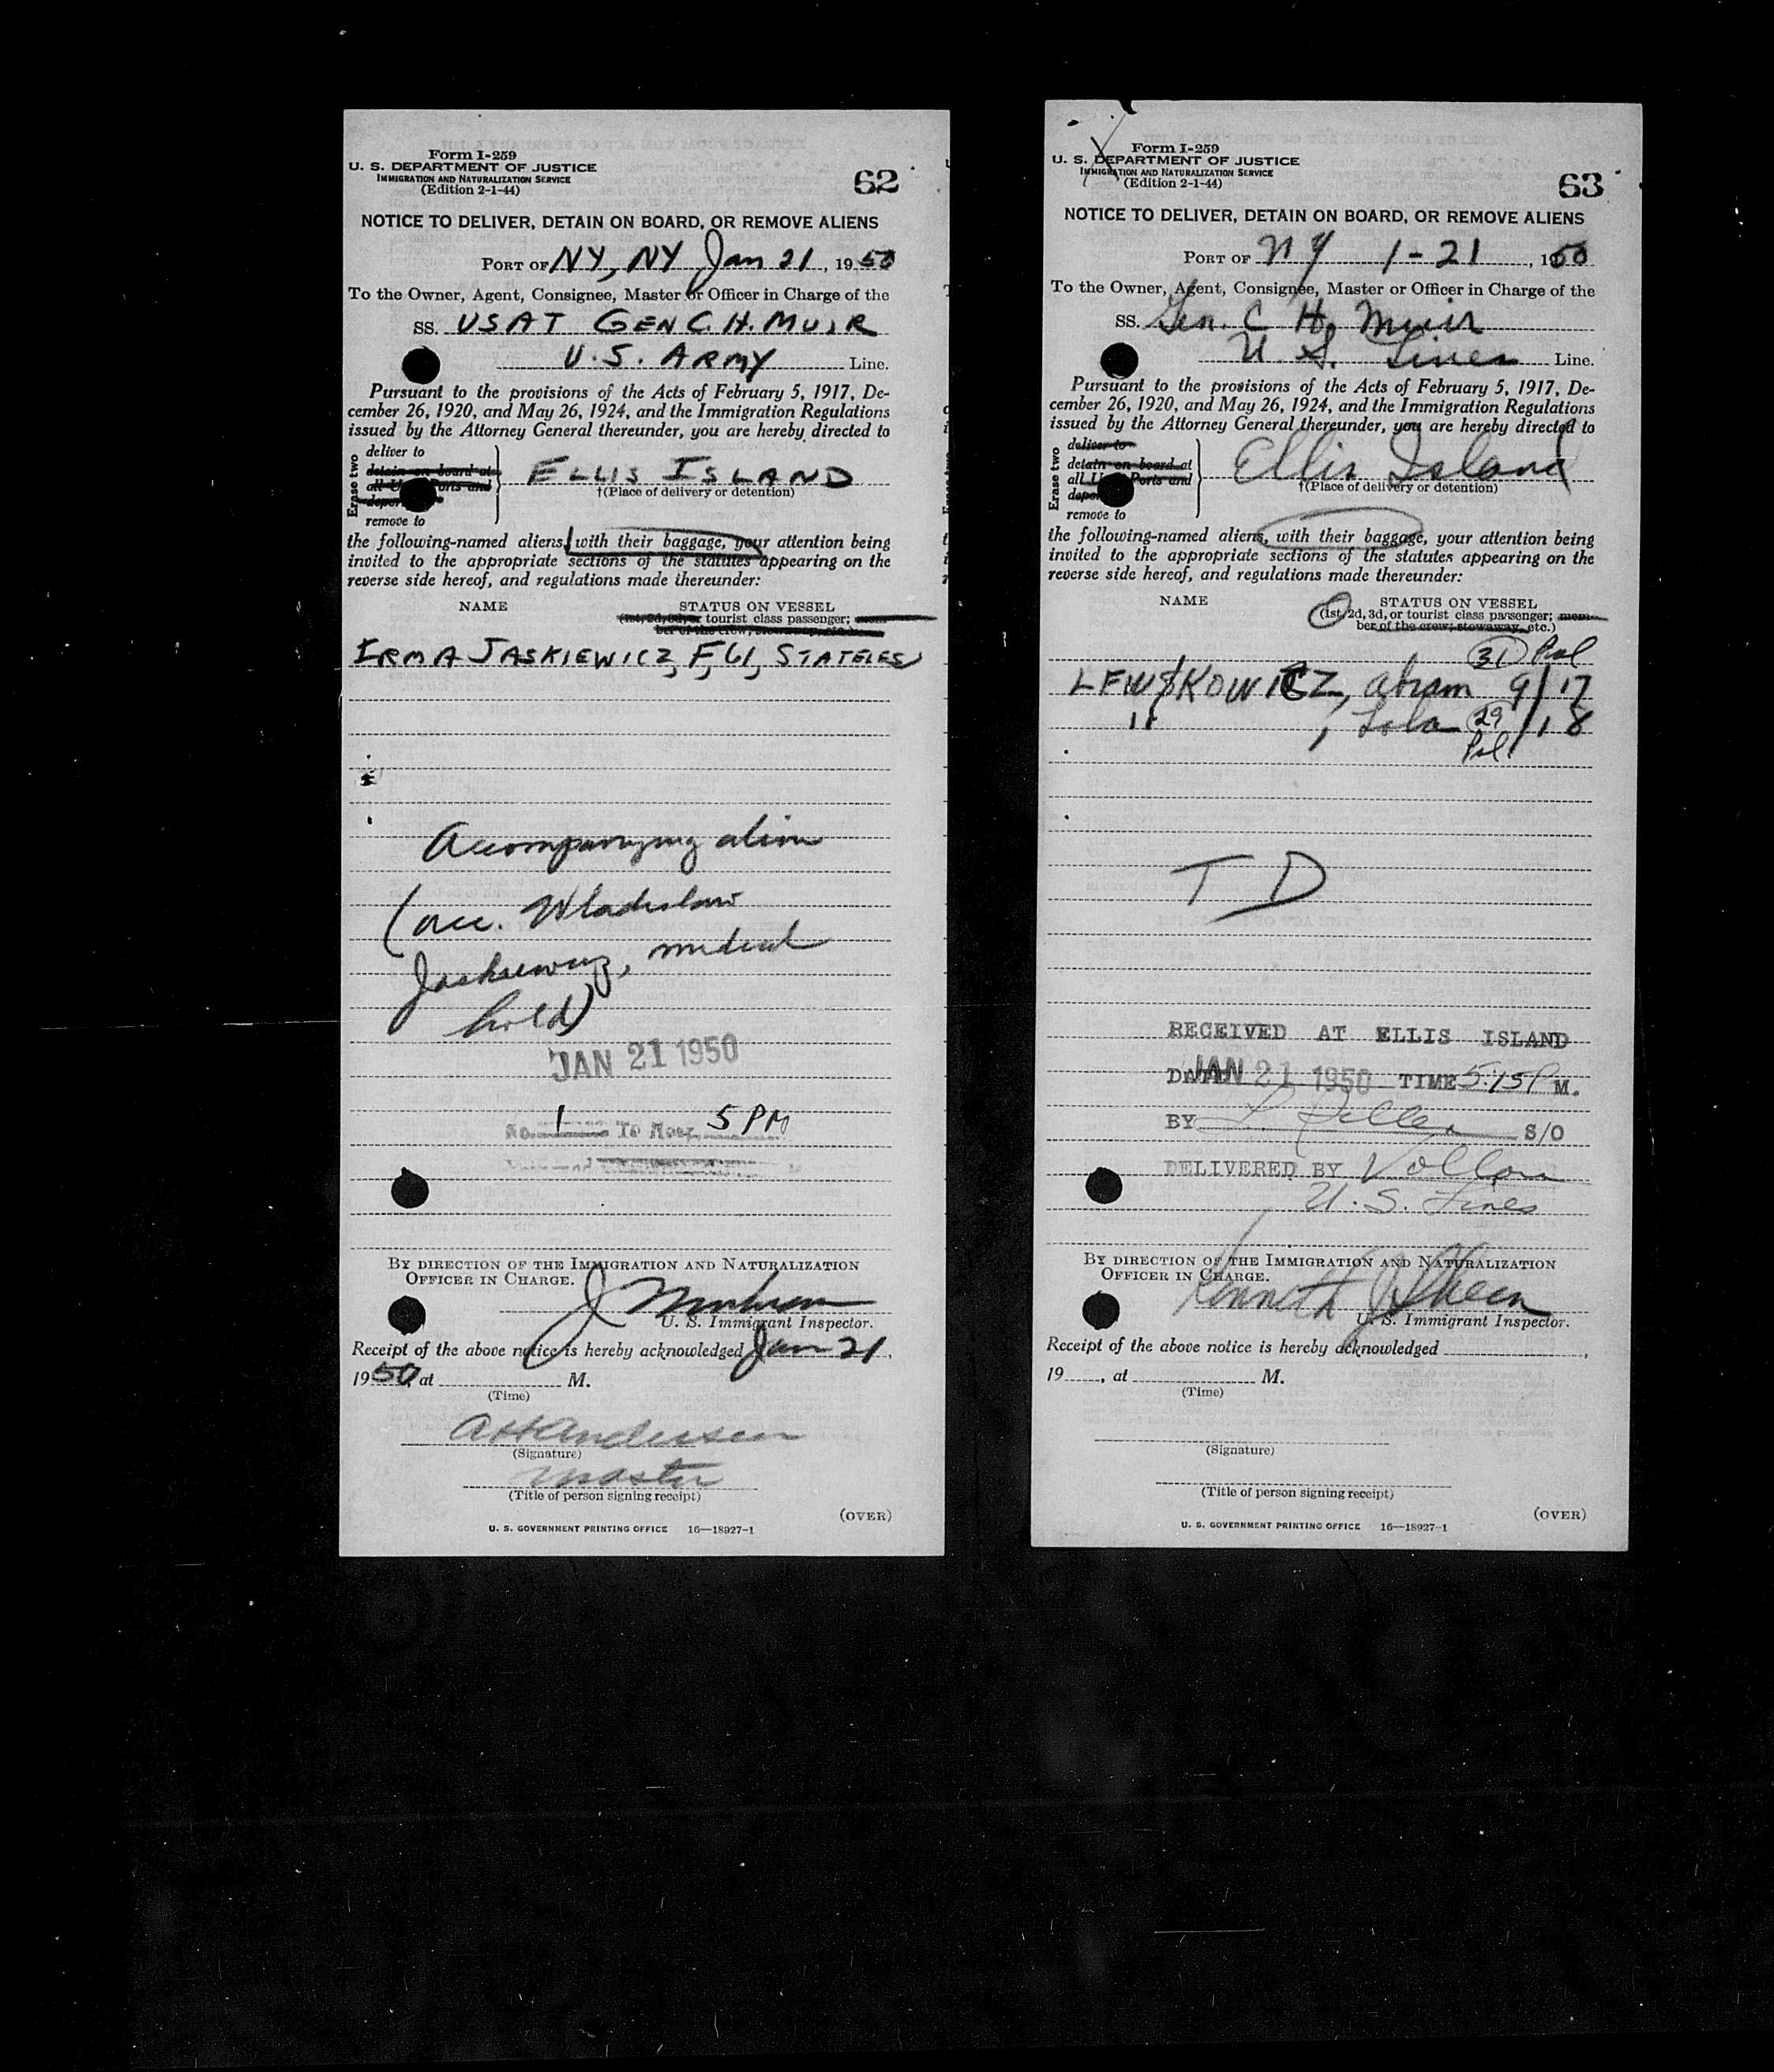 Form I-259
U. S. DEPARTMENT OF JUSTICE
IMMIGRATION AND NATURALIZATION SERVICE
(Edition 2-1-44)
62
NOTICE TO DELIVER, DETAIN ON BOARD, OR REMOVE ALIENS
PORT OF NY, NY Jan 21, 1950
To the Owner, Agent, Consignee, Master or Officer in Charge of the
SS. USAT GEN C. H. MUIR
U. S. ARMY Line.
Pursuant to the provisions of the Acts of February 5, 1917, De-
cember 26, 1920, and May 26, 1924, and the Immigration Regulations
issued by the Attorney General thereunder, you are hereby directed to
Erase two
deliver to
detain on board at
all U. Ports and
depor
remove to
ELLIS ISLAND
†(Place of delivery or detention)
the following-named aliens, with their baggage, your attention being
invited to the appropriate sections of the statutes appearing on the
reverse side hereof, and regulations made thereunder:
NAME STATUS ON VESSEL
(1st, 2d, 3d, or tourist class passenger; mem-
ber of the crew; stowaway, etc.)
IRMA JASKIEWICZ, F, 61, STATELES
Accompanying alien
(acc. Wladislaw
Jaskiewicz, medical
hold)
JAN 21 1950
No. 1 5 PM
BY DIRECTION OF THE IMMIGRATION AND NATURALIZATION
OFFICER IN CHARGE.
U. S. Immigrant Inspector.
Receipt of the above notice is hereby acknowledged Jan 21,
1950, at M.
(Time)
Andersen
(Signature)
master
(Title of person signing receipt)
(OVER)
U. S. GOVERNMENT PRINTING OFFICE 16—18927-1
Form I-259
U. S. DEPARTMENT OF JUSTICE
IMMIGRATION AND NATURALIZATION SERVICE
(Edition 2-1-44)
63
NOTICE TO DELIVER, DETAIN ON BOARD, OR REMOVE ALIENS
PORT OF NY 1-21, 1950
To the Owner, Agent, Consignee, Master or Officer in Charge of the
SS. Gen. C H. Muir
U. S. Lines Line.
Pursuant to the provisions of the Acts of February 5, 1917, De-
cember 26, 1920, and May 26, 1924, and the Immigration Regulations
issued by the Attorney General thereunder, you are hereby directed to
Erase two
deliver to
detain on board at
all U. Ports and
depo
remove to
Ellis Island
†(Place of delivery or detention)
the following-named aliens, with their baggage, your attention being
invited to the appropriate sections of the statutes appearing on the
reverse side hereof, and regulations made thereunder:
NAME STATUS ON VESSEL
(1st, 2d, 3d, or tourist class passenger; mem-
ber of the crew; stowaway, etc.)
31 Pol
LEWSKOWICZ, Abram 9/17
" , Lola 29 /18
Pol
T D
RECEIVED AT ELLIS ISLAND
DATE JAN 21 1950 TIME 5:15 P M.
BY S/O
DELIVERED BY
U. S. Lines
BY DIRECTION OF THE IMMIGRATION AND NATURALIZATION
OFFICER IN CHARGE.
Kenneth J. Skeen
U. S. Immigrant Inspector.
Receipt of the above notice is hereby acknowledged ,
19 , at M.
(Time)
(Signature)
(Title of person signing receipt)
(OVER)
U. S. GOVERNMENT PRINTING OFFICE 16—18927-1